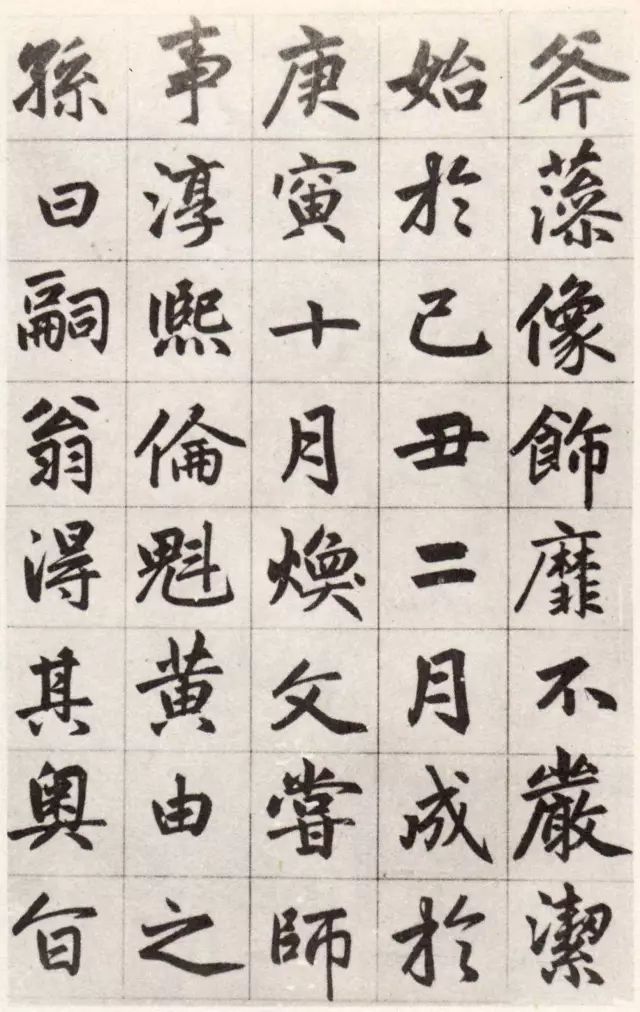 斧藻像飾靡不嚴潔
始於己丑二月成於
庚寅十月煥文嘗師
事淳熙倫魁黄由之
孫曰嗣翁得其奥旨